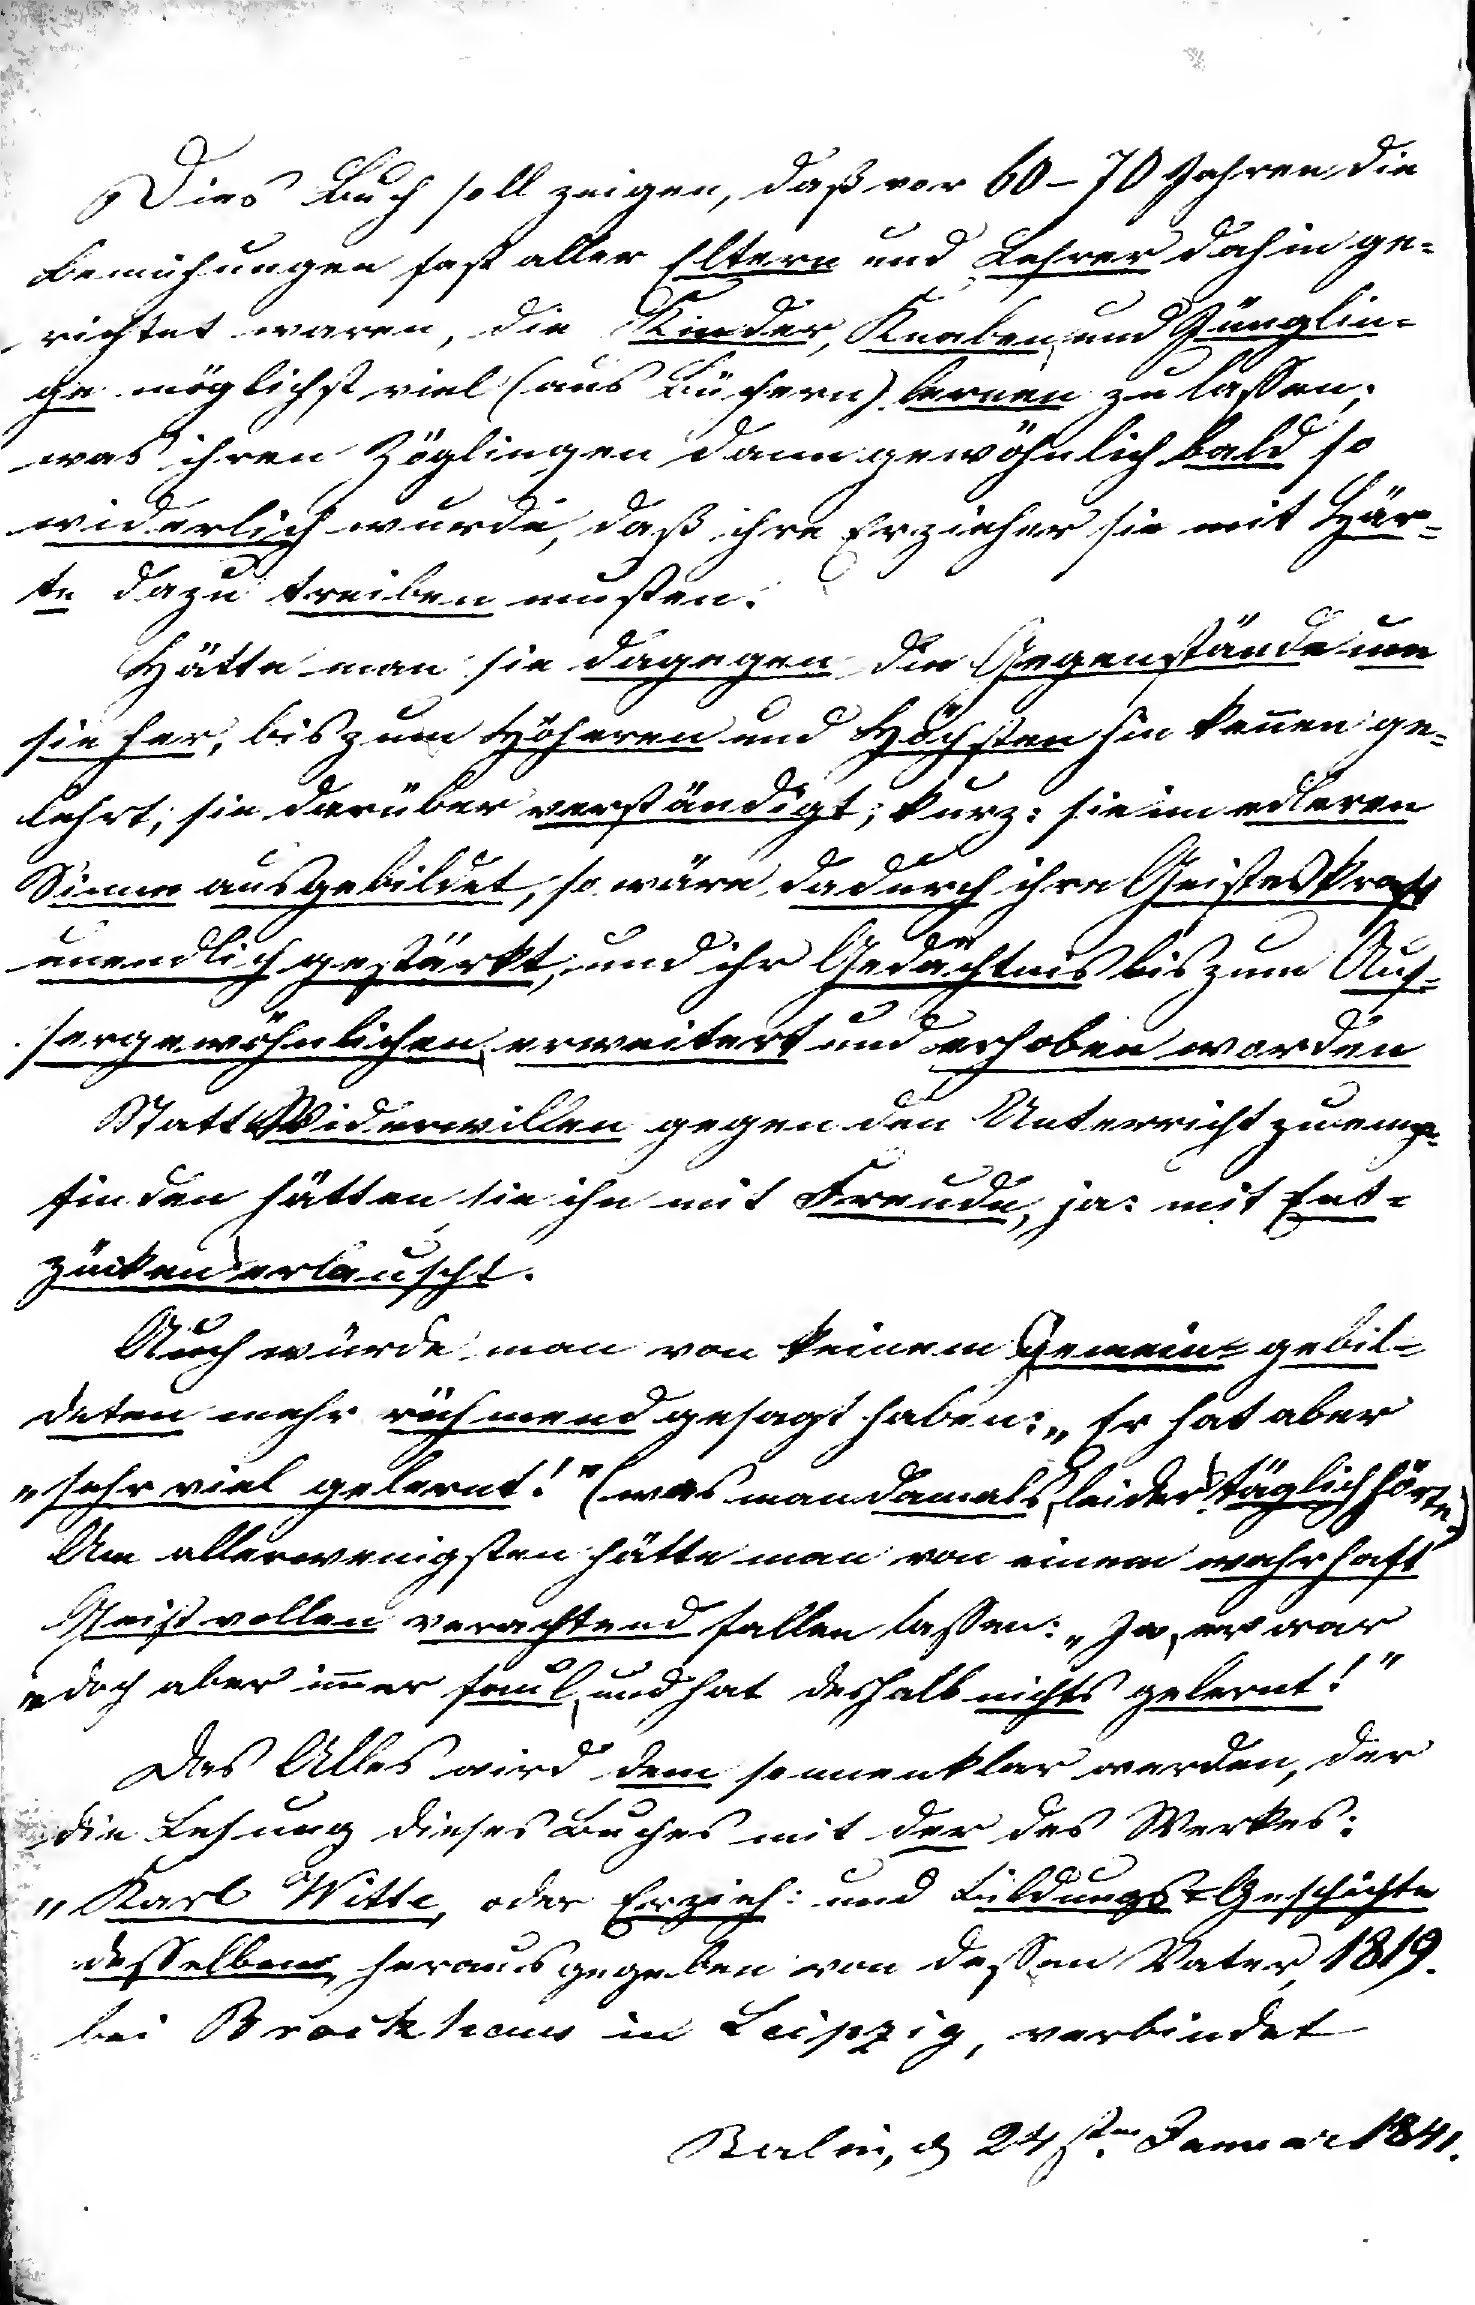 Dies Buch soll zeigen, daß vor 60–70 Jahren die
Bemühungen fast aller Eltern und Lehrer dahin ge=
richtet waren, die Kinder, Knaben und Jünglin=
ge möglichst viel (aus Büchern) lernen zu lassen;
was ihren Zöglingen dann gewöhnlich bald so
widerlich wurde, daß ihre Erzieher sie mit Här=
te dazu treiben mußten.
Hätte man sie dagegen die Gegenstände um
sie her, bis zum Höheren und Höchsten hin kennen ge=
lehrt; sie darüber verständigt; kurz: sie im edleren
Sinne ausgebildet, so wäre dadurch ihre Geisteskraft
unendlich gestärkt, und ihr Gedächtnis bis zum Aus=
sergewöhnlichen erweitert und erhoben worden
Statt Widerwillen gegen den Unterricht zu emp=
finden hätten sie ihn mit Freude, ja: mit Ent=
zücken erlauscht.
Auch würde man von keinem gemein= gebil=
deten mehr rühmend gesagt haben: „Er hat aber
„sehr viel gelernt!" (was man damals leider täglich hörte)
Am allerwenigsten hätte man von einem wahrhaft
Geistvollen verachtend fallen lassen: „Ja, er war
„doch aber immer faul, und hat deshalb nichts gelernt!"
Das Alles wird dem sonnenklar werden, der
die Lesung dieses Buches mit der des Werkes:
„Karl Witte, oder Erzieh: und Bildungs=Geschichte
desselben, herausgegeben von dessen Vater, 1819.
bei Brockhaus in Leipzig, verbindet
Berlin, d 24sten Januar 1841.